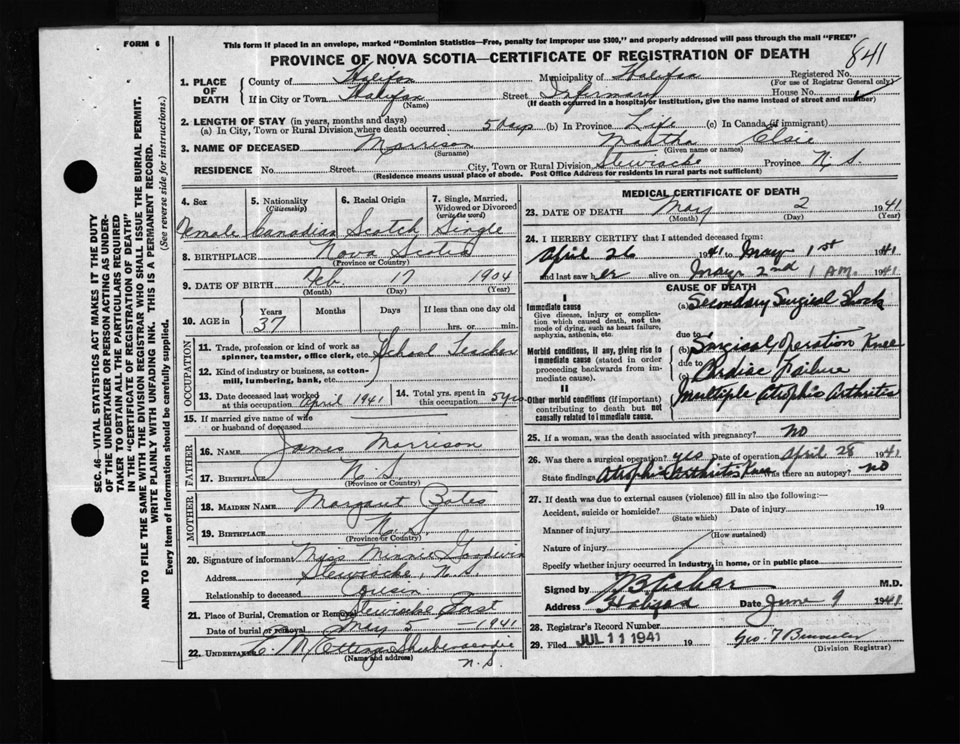 FORM 6
This form if placed in an envelope, marked "Dominion Statistics—Free, penalty for improper use $300," and properly addressed will pass through the mail "FREE"
PROVINCE OF NOVA SCOTIA—CERTIFICATE OF REGISTRATION OF DEATH
841
SEC. 46—VITAL STATISTICS ACT MAKES IT THE DUTY
OF THE UNDERTAKER OR PERSON ACTING AS UNDER-
TAKER TO OBTAIN ALL THE PARTICULARS REQUIRED
IN THE "CERTIFICATE OF REGISTRATION OF DEATH"
AND TO FILE THE SAME WITH THE DIVISION REGISTRAR WHO SHALL ISSUE THE BURIAL PERMIT.
WRITE PLAINLY WITH UNFADING INK. THIS IS A PERMANENT RECORD.
Every item of information should be carefully supplied. (See reverse side for instructions.)
1. PLACE OF DEATH County of Halifax Municipality of Halifax Registered No.
(For use of Registrar General only)
If in City or Town Halifax Street Infirmary House No.
(Name) (If death occurred in a hospital or institution, give the name instead of street and number)
2. LENGTH OF STAY (in years, months and days)
(a) In City, Town or Rural Division where death occurred 5 days (b) In Province Life (c) In Canada (if immigrant)
3. NAME OF DECEASED Morrison Elsie
(Surname) (Given name or names)
RESIDENCE No. Street City, Town or Rural Division Stewiacke Province N.S.
(Residence means usual place of abode. Post Office Address for residents in rural parts not sufficient)
4. Sex 5. Nationality (Citizenship) 6. Racial Origin 7. Single, Married, Widowed or Divorced (write the word)
Female Canadian Scotch Single
8. BIRTHPLACE Nova Scotia
(Province or Country)
9. DATE OF BIRTH Feb 17 1904
(Month) (Day) (Year)
10. AGE in Years Months Days If less than one day old
37 hrs. or min.
OCCUPATION
11. Trade, profession or kind of work as spinner, teamster, office clerk, etc. School Teacher
12. Kind of industry or business, as cotton-mill, lumbering, bank, etc.
13. Date deceased last worked at this occupation April 1941 14. Total yrs. spent in this occupation 5 yrs
15. If married give name of wife or husband of deceased
FATHER
16. NAME James Morrison
17. BIRTHPLACE N.S.
(Province or Country)
MOTHER
18. MAIDEN NAME Margaret Bates
19. BIRTHPLACE N.S.
(Province or Country)
20. Signature of informant Miss Minnie Goodwin
Address Stewiacke, N.S.
Relationship to deceased Cousin
21. Place of Burial, Cremation or Removal Stewiacke East
Date of burial or removal May 5 1941
22. UNDERTAKER Shubenacadie
(Name and address) N.S.
MEDICAL CERTIFICATE OF DEATH
23. DATE OF DEATH May 2 1941
(Month) (Day) (Year)
24. I HEREBY CERTIFY that I attended deceased from:
April 26 1941 to May 1st 1941
and last saw her alive on May 2nd 1 AM. 1941
CAUSE OF DEATH
I
Immediate cause (a) Secondary Surgical Shock
Give disease, injury or complication which caused death, not the mode of dying, such as heart failure, asphyxia, asthenia, etc.
due to
Morbid conditions, if any, giving rise to immediate cause (stated in order proceeding backwards from immediate cause). (b) Surgical Operation Knee
due to
(c) Cardiac Failure
II
Other morbid conditions (if important) contributing to death but not causally related to immediate cause. Multiple Atrophic Arthritis
25. If a woman, was the death associated with pregnancy? no
26. Was there a surgical operation? yes Date of operation April 28 1941
State findings Atrophic Arthritis Knee Was there an autopsy? no
27. If death was due to external causes (violence) fill in also the following:—
Accident, suicide or homicide? Date of injury 19
(State which)
Manner of injury
(How sustained)
Nature of injury
Specify whether injury occurred in industry, in home, or in public place
Signed by M.D.
Address Halifax Date June 9 1941
28. Registrar's Record Number
29. Filed JUL 11 1941 19
(Division Registrar)